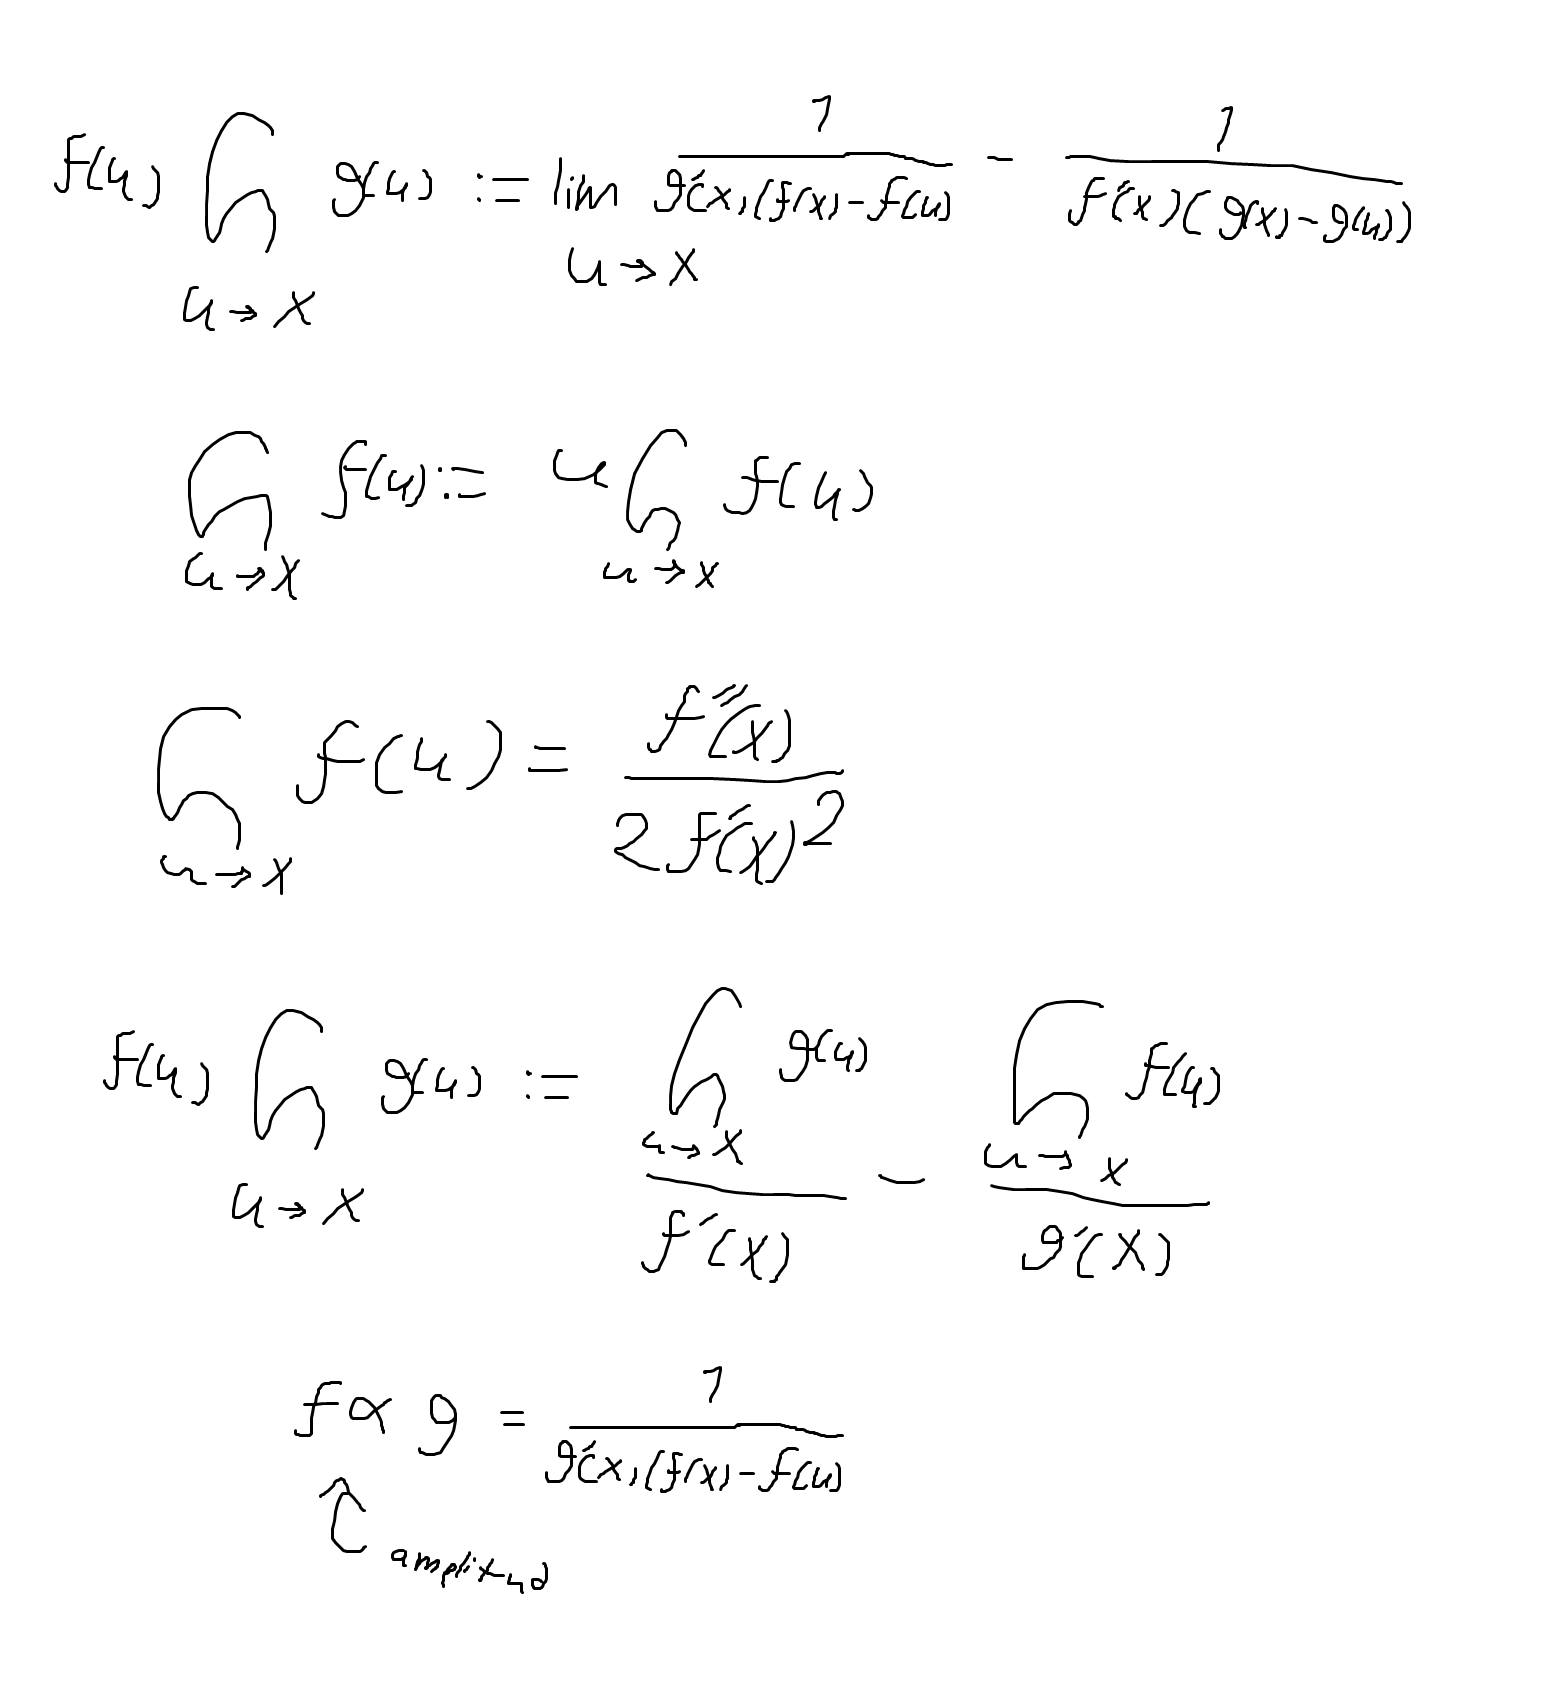 f(u) ɕ_{u→x} g(u) := lim_{u→x} 1/(g'(x)(f(x)-f(u)) - 1/(f'(x)(g(x)-g(u)))
ɕ_{u→x} f(u) := u ɕ_{u→x} f(u)
ɕ_{u→x} f(u) = f''(x)/(2f'(x)^2)
f(u) ɕ_{u→x} g(u) := (ɕ_{u→x} g(u))/(f'(x)) - (ɕ_{u→x} f(u))/(g'(x))
f ∝ g = 1/(g'(x)(f(x)-f(u))
↑ amplitud